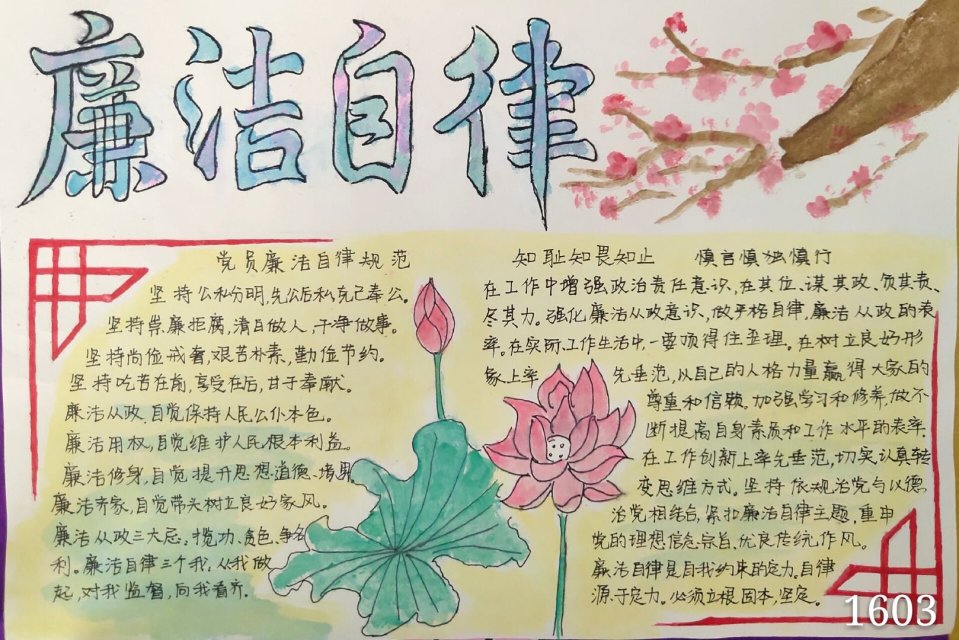 廉洁自律
党员廉洁自律规范
坚持公私分明,先公后私,克己奉公。
坚持崇廉拒腐,清白做人,干净做事。
坚持尚俭戒奢,艰苦朴素,勤俭节约。
坚持吃苦在前,享受在后,甘于奉献。
廉洁从政,自觉保持人民公仆本色。
廉洁用权,自觉维护人民根本利益。
廉洁修身,自觉提升思想道德境界
廉洁齐家,自觉带头树立良好家风。
廉洁从政三大忌,揽功、贪色、争名
利。廉洁自律三个我,从我做
起,对我监督,向我看齐。
知耻知畏知止 慎言慎独慎行
在工作中增强政治责任意识,在其位、谋其政、负其责、
尽其力。强化廉洁从政意识,做严格自律,廉洁从政的表
率。在实际工作生活中,一要顶得住歪理。在树立良好形
象上率先垂范,以自己的人格力量赢得大家的
尊重和信赖。加强学习和修养,做不
断提高自身素质和工作水平的表率
在工作创新上率先垂范,切实认真转
变思维方式。坚持依规治党与以德
治党相结合,紧扣廉洁自律主题,重申
党的理想信念宗旨、优良传统作风。
廉洁自律是自我约束的定力。自律
源于定力。必须立根固本,坚定。
1603